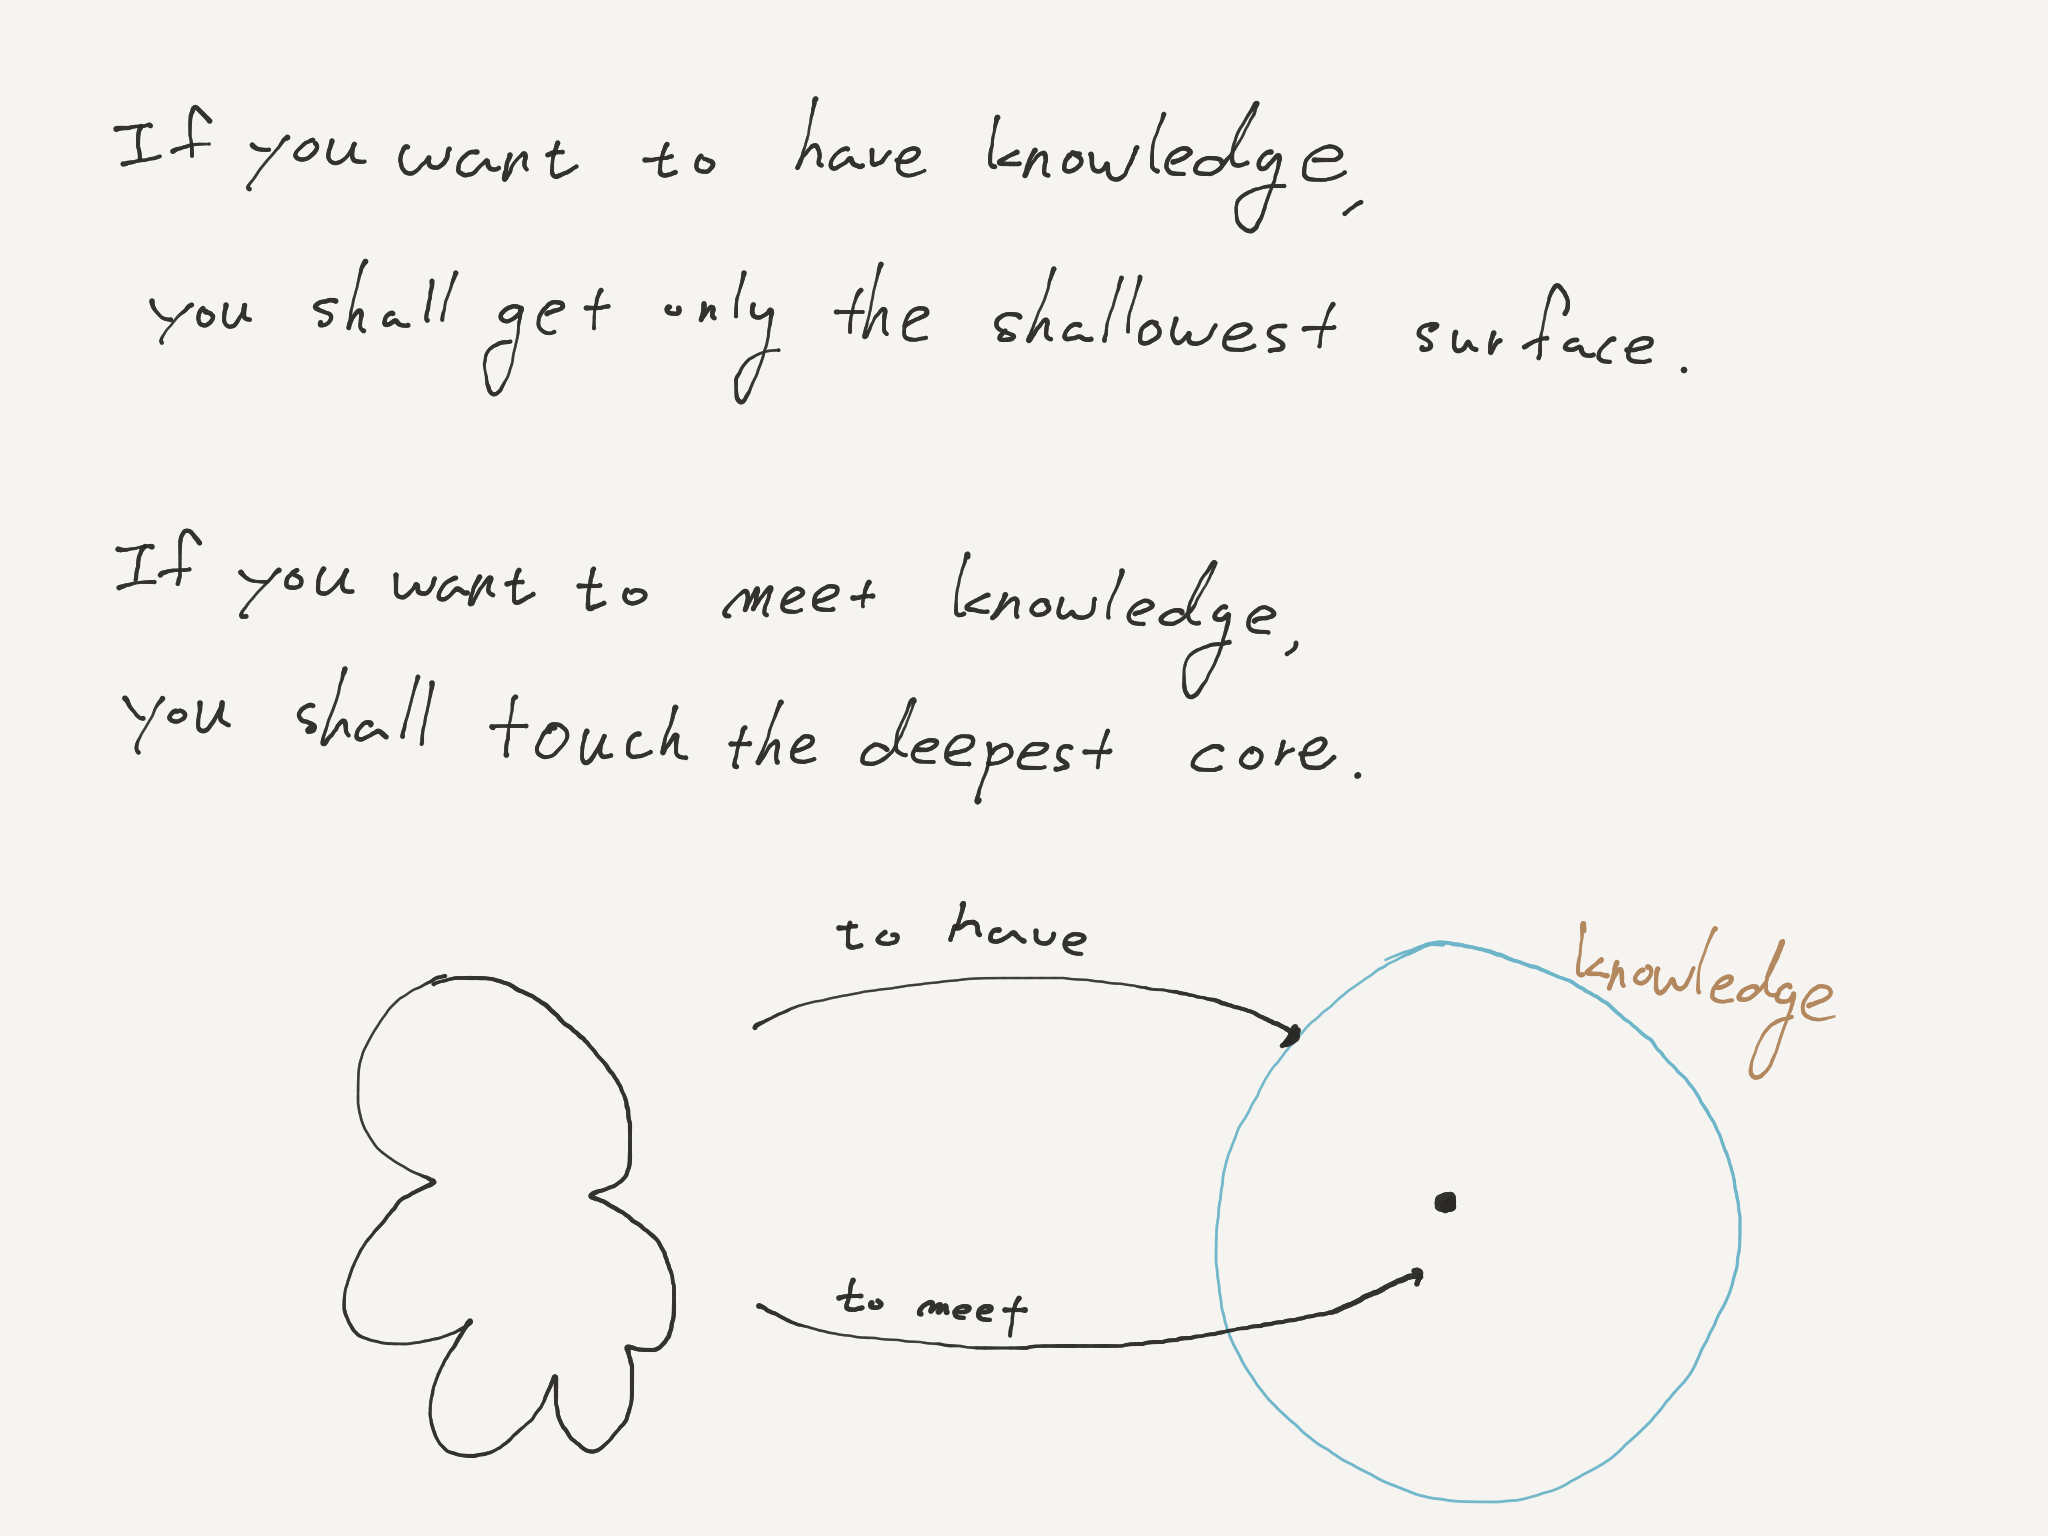 If you want to have knowledge,
you shall get only the shallowest surface.
If you want to meet knowledge,
you shall touch the deepest core.
to have
knowledge
to meet